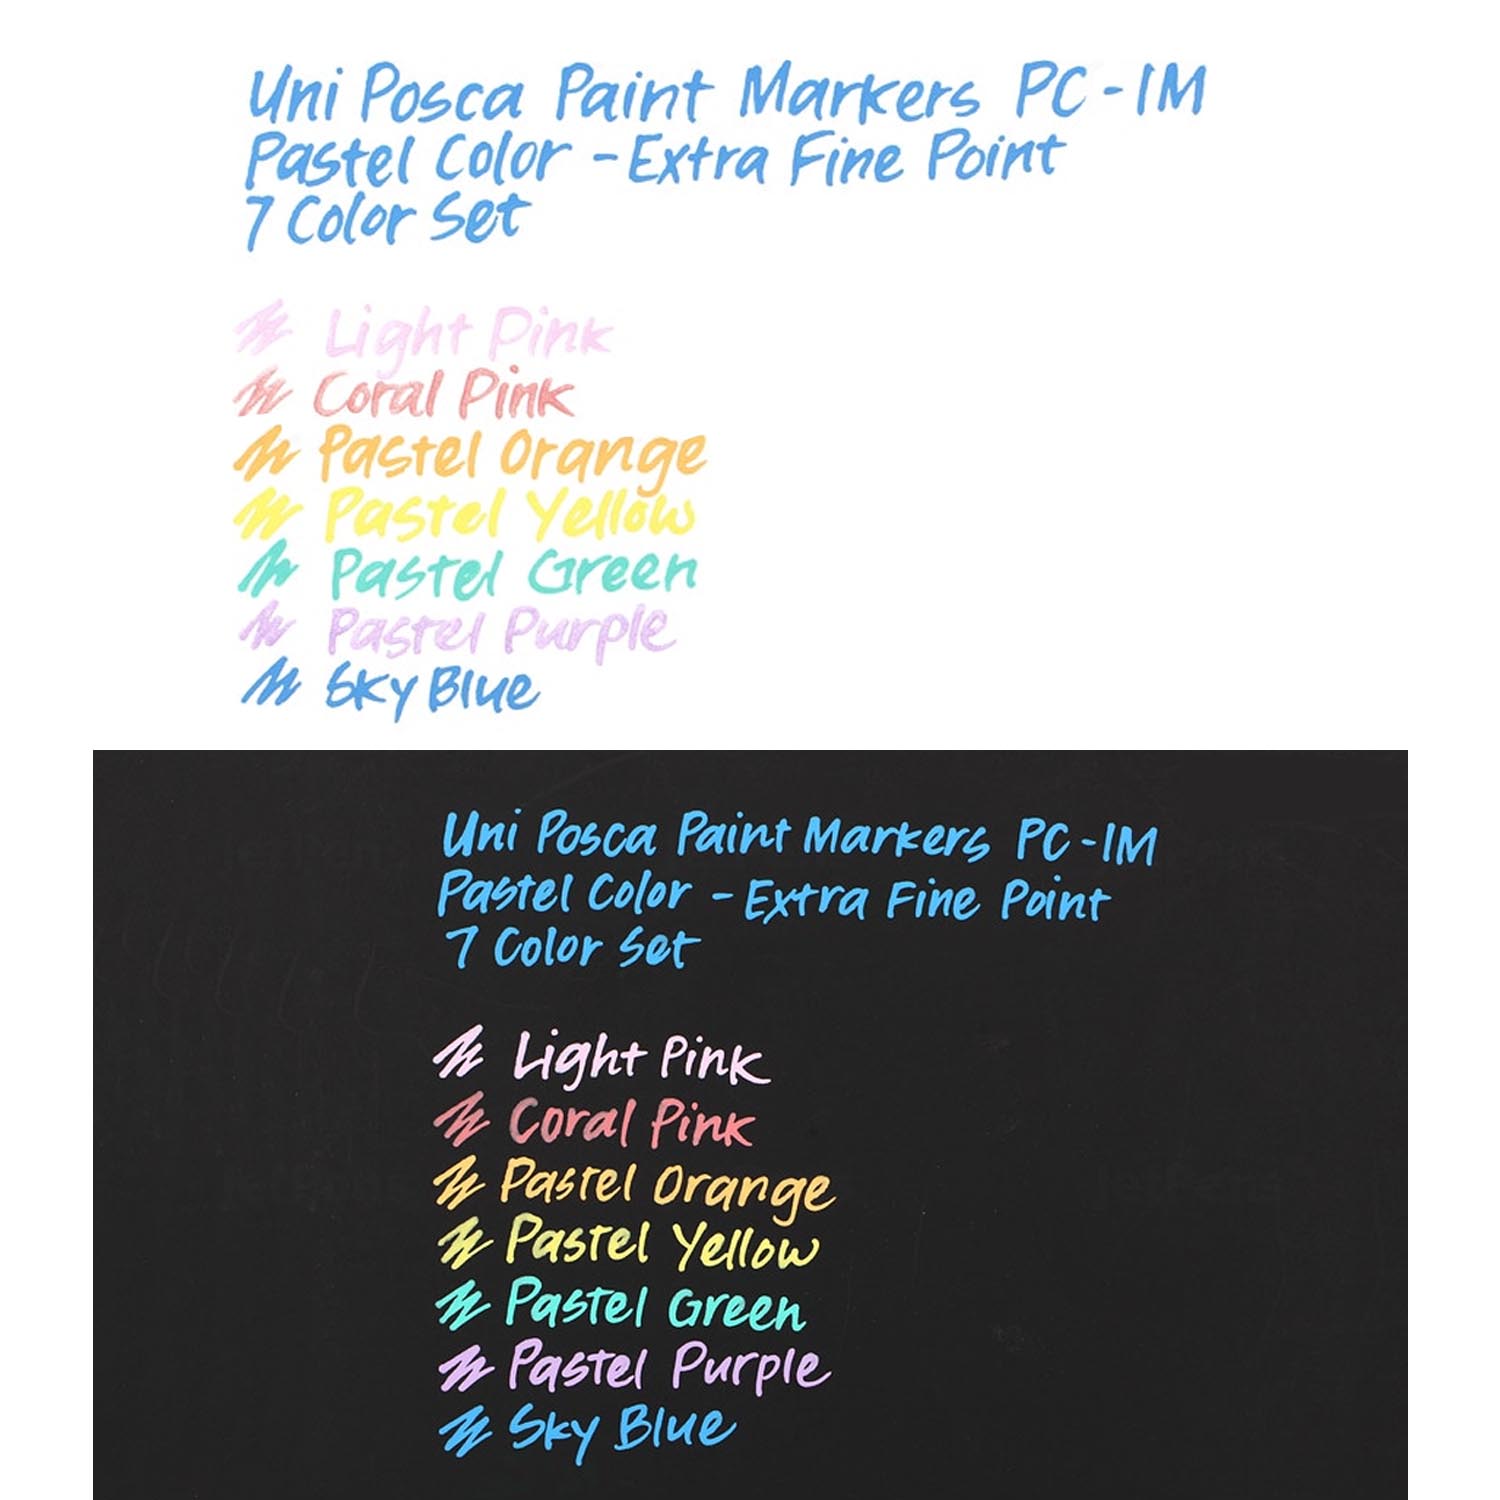 Uni Posca Paint Markers PC-1M
Pastel Color - Extra Fine Point
7 Color Set
Light Pink
Coral Pink
Pastel Orange
Pastel Yellow
Pastel Green
Pastel Purple
Sky Blue
Uni Posca Paint Markers PC-1M
Pastel Color - Extra Fine Point
7 Color Set
Light Pink
Coral Pink
Pastel Orange
Pastel Yellow
Pastel Green
Pastel Purple
Sky Blue